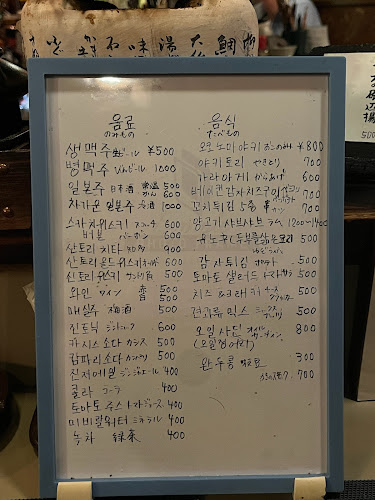 음료
のみもの
생맥주 生ビール ¥500
병맥주 びんビール 600
일본주 日本酒 常温 500
かん 600
차가운 일본주 冷酒 1000
스카치위스키 スコッチ 600
버번 バーボン 600
산토리 치타 900
산토리 올드위스키 500
산토리위스키 500
와인 ワイン 赤 500
白 500
매실주 梅酒 500
진토닉 ジントニック 600
카시스소다 カシス 500
캄파리소다 カンパリ 500
진저에일 ジンジャエール 400
콜라 コーラ 400
토마토 쥬스 トマトジュース 400
미네랄워터 ミネラル 400
녹차 緑茶 400
음식
たべもの
오코노미야키 おこのみ ¥800
야키토리 やきとり 700
가라아게 からあげ 600
베이컨감자치즈구이 700
꼬치튀김 5종 700
양고기 샤브샤브 ラム 1200~1400
유도후(두부를삶은요리 500
ゆどうふ
감자튀김 ポテト 500
토마토 샐러드 トマトサラダ 500
치즈&크래커 チーズ クラッカー 500
견과류 믹스 ミックスナッツ 500
오일 사딘 オイルサーディン 800
(오일정어리)
완두콩 枝豆 300
700